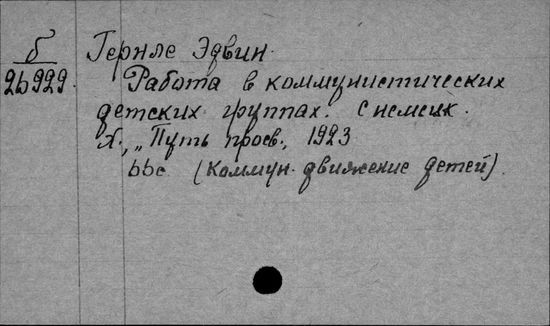 б Гернле Эдвин.
26929. Работа в коммунистических
детских группах. С немецк.
Х., „Путь просв., 1923
ббс (Коммун. движение детей).